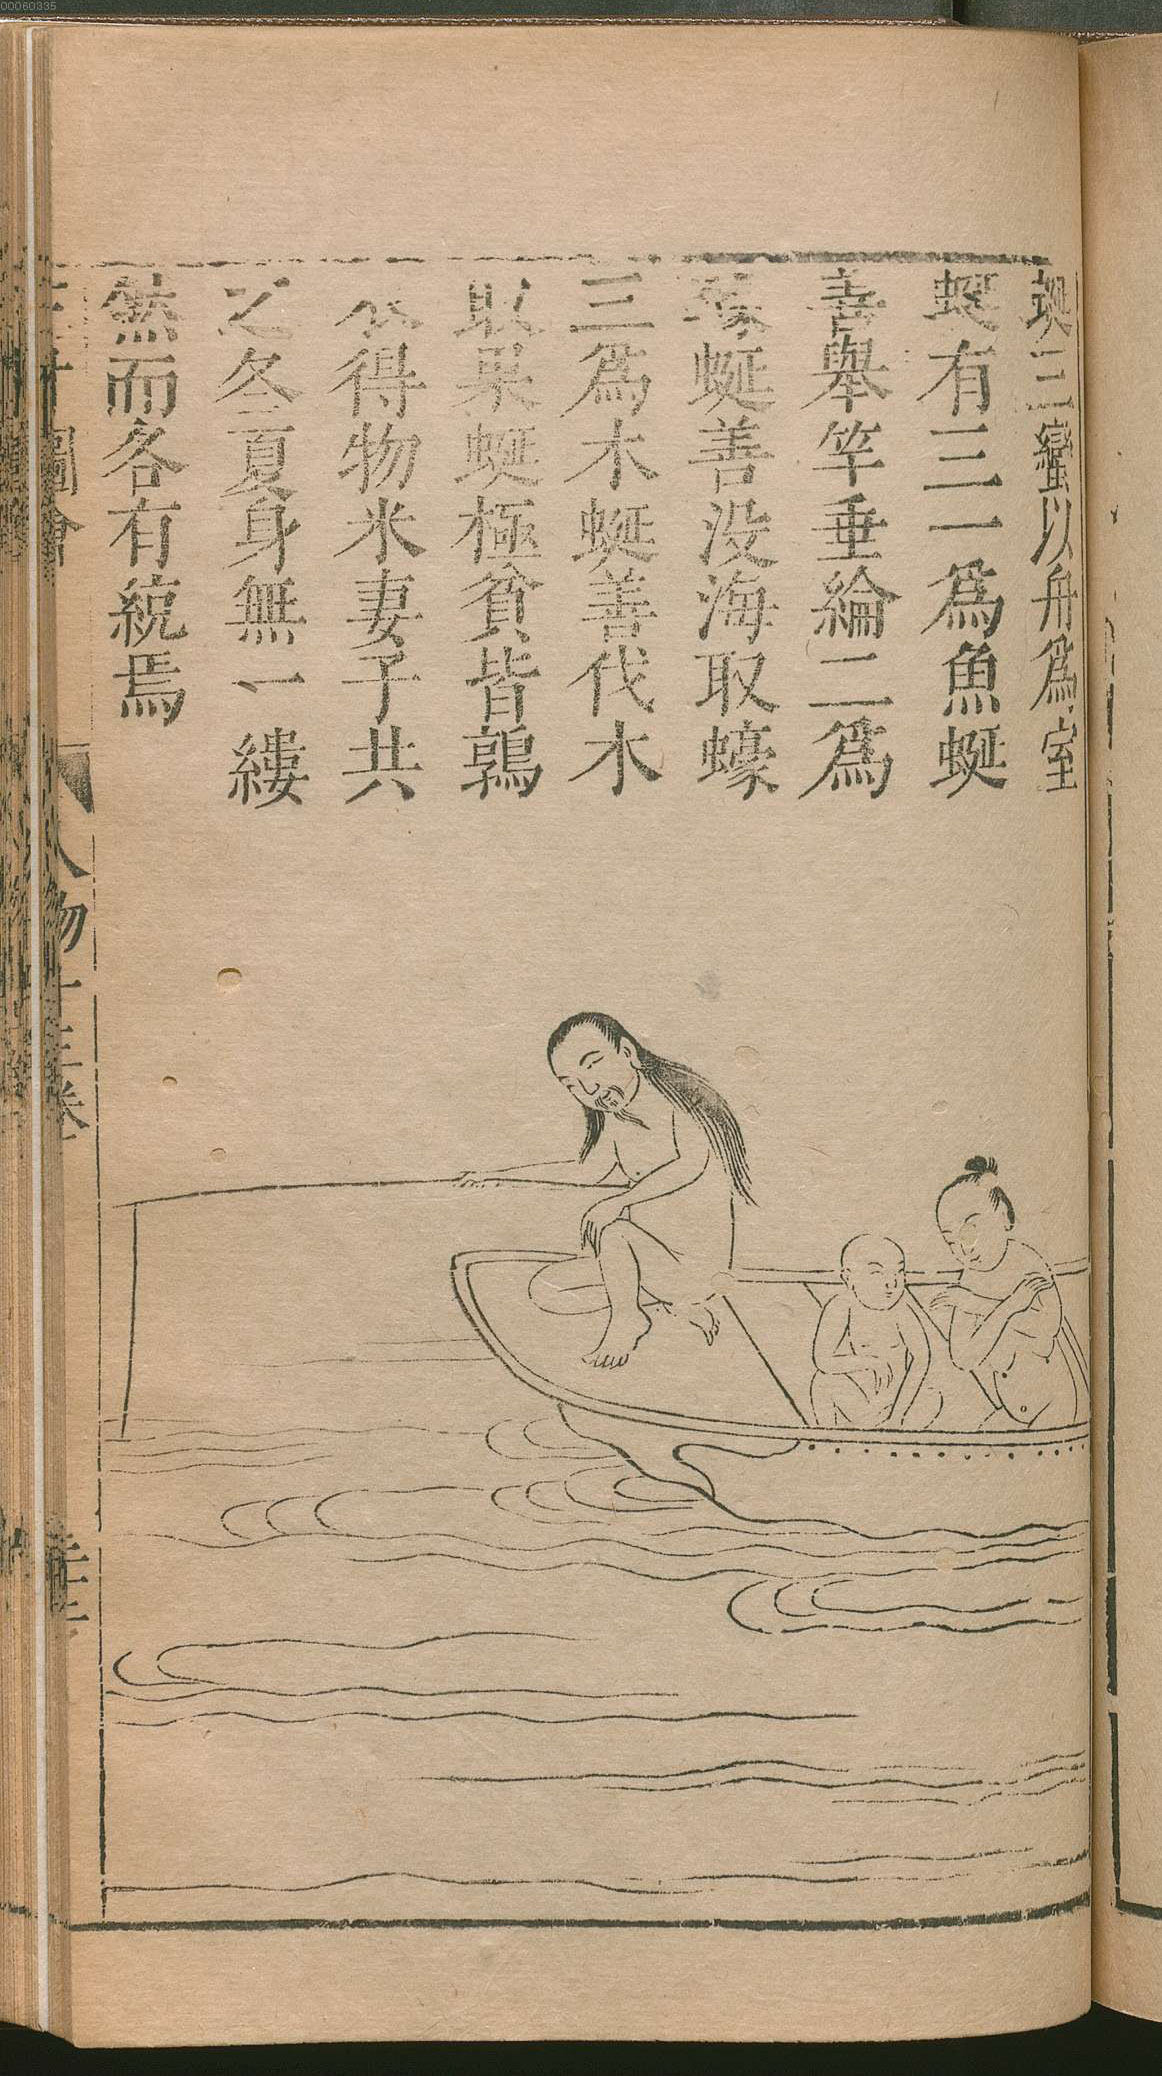 00060335
蜒三蠻以舟爲室
蜒有三一爲魚蜒
善舉竿垂綸二爲
蠔蜒善没海取蠔
三爲木蜒善伐木
取果蜒極貧皆鶉
衣得物米妻子共
之冬夏身無一縷
然而各有統焉
圖會
人物十三卷